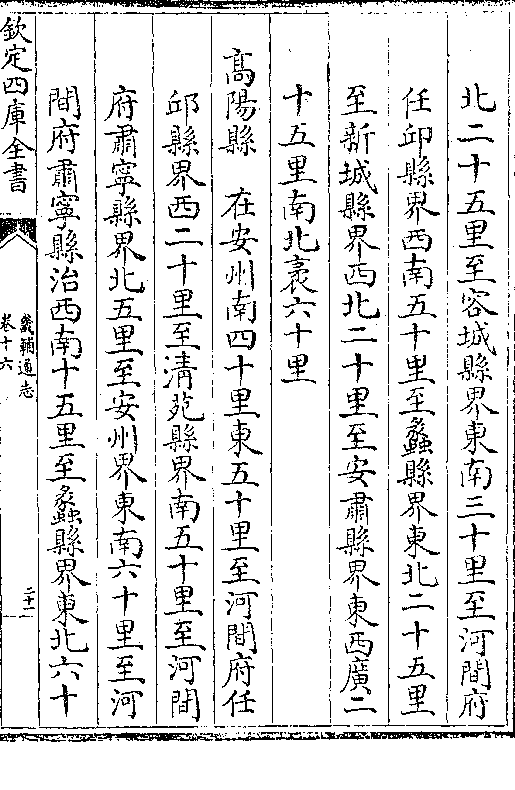 北二十五里至容城縣界東南三十里至河間府
任邱縣界西南五十里至蠡縣界東北二十五里
至新城縣界西北二十里至安肅縣界東西廣二
十五里南北袤六十里
高陽縣　在安州南四十里東五十里至河間府任
邱縣界西二十里至清苑縣界南五十里至河間
府肅寧縣界北五里至安州界東南六十里至河
間府肅寧縣治西南十五里至蠡縣界東北六十
欽定四庫全書
畿輔通志
卷十六
二十一